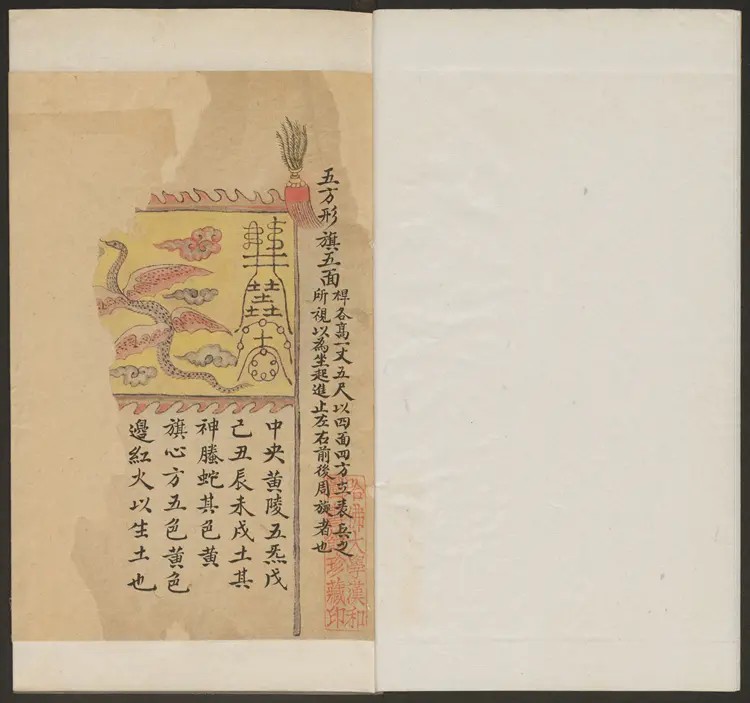 五方形旗五面
桿各高一丈五尺以四面四方立表兵之
所視以為坐起進止左右前後周旋者也
中央黃陵五炁戊
己丑辰未戌土其
神螣蛇其色黃
旗心方五色黃色
邊紅火以生土也
哈佛大學漢和
珍藏印